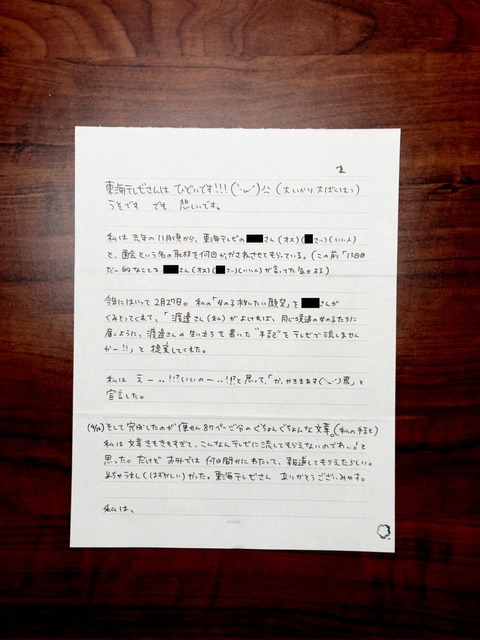 東海テレビさんは ひどいです!!! (`･ω･´)💢 (大いかり大ばくはつ)
うそです でも 悲しいです。
私は去年の11月頃から、東海テレビの さん(オス)( さー)(いい人)
と、面会という名の取材を何回かかさねさせてもらっている。(この前「1500
だー的なことを さん(オス)( ー)(いい人)が言ってた気がする)
今年にはいって2月27日。私の「女の子救いたい願望」を さんが
くみとってくれて、「渡邊さん(私)がよければ、同じ境遇の女の子たちに
届くように、渡邊さんの生い立ちを書いた"手記"をテレビで流しません
かー!!」と提案してくれた。
私は えー…!!?いいのー…!!?と思って、「か、かきます」と
宣言した。
そして完成したのが便せん87ページ分のぐちょんぐちょんな文章。(私の手記)
私は文章きもきもすぎて、こんなんテレビに流してもらえないのでわー。と
思った。だけど お外では 何日間かにわたって、報道してもらえたらしい。
めちゃうれし(はずかしい)かった。東海テレビさん ありがとうございみゃす。
私は、